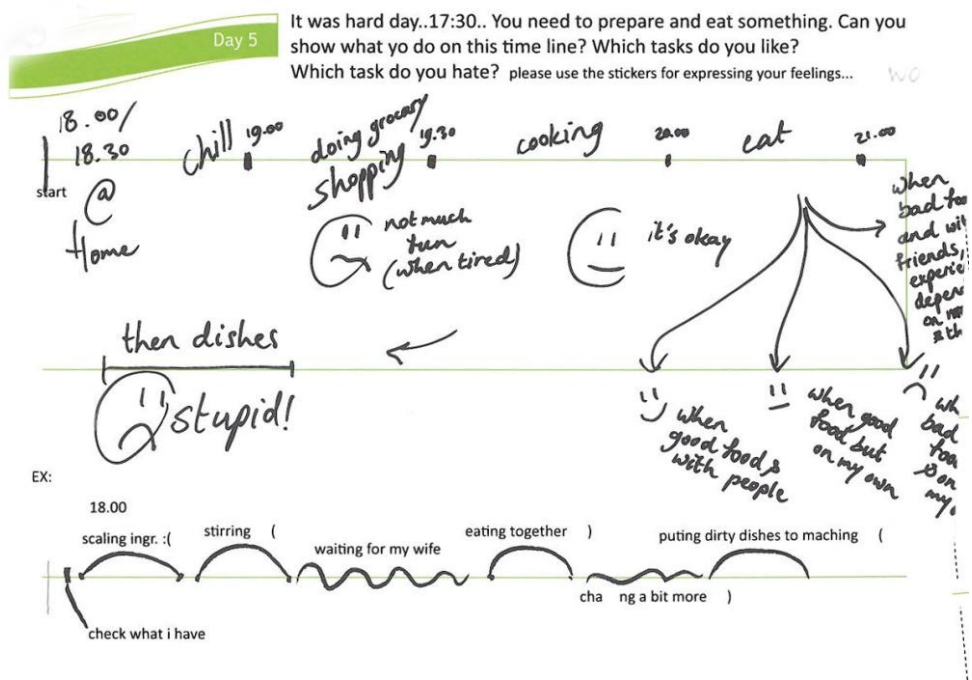 Day 5
It was hard day..17:30.. You need to prepare and eat something. Can you
show what yo do on this time line? Which tasks do you like?
Which task do you hate? please use the stickers for expressing your feelings...
wo
18.00/
18.30
@
Home
start
chill
19.00
doing grocary
shopping
19.30
cooking
20.00
eat
21.00
not much
fun
(when tired)
it's okay
when
bad foo
and wi
friends,
experie
depen
on
then dishes
stupid!
when
good food &
with people
when good
food but
on my own
wh
bad
foo
& on
my
EX:
18.00
scaling ingr. :(
stirring (
waiting for my wife
eating together )
puting dirty dishes to maching (
cha ng a bit more )
check what i have